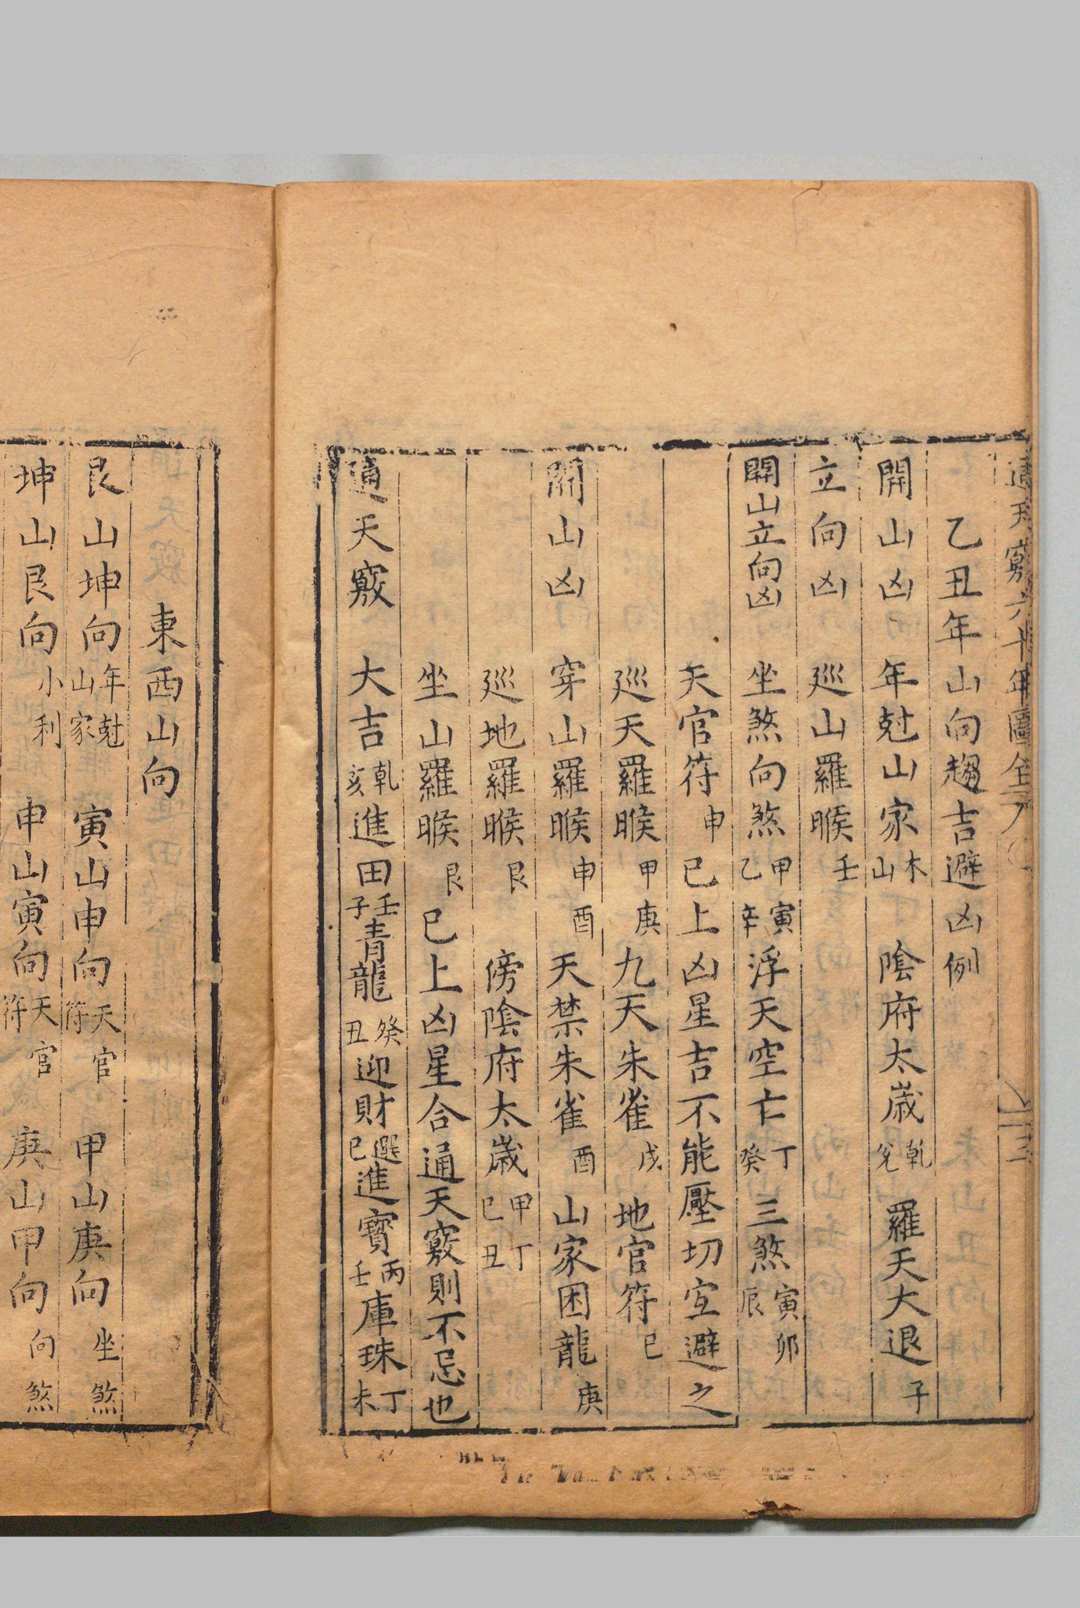 通天竅六十年圖全
三
乙丑年山向趨吉避凶例
開山凶 年尅山家木山 陰府太歲乾兌 羅天大退子
立向凶 巡山羅睺壬
開山立向凶 坐煞向煞甲寅乙辛 浮天空亡丁癸 三煞寅卯辰
天官符申 已上凶星吉不能壓切宜避之
巡天羅睺甲庚 九天朱雀戌 地官符巳
開山凶 穿山羅睺申酉 天禁朱雀酉 山家困龍庚
巡地羅睺艮 傍陰府太歲甲丁巳丑
坐山羅睺艮 已上凶星合通天竅則不忌也
通天竅 大吉乾亥進田壬子青龍癸丑迎財選巳進寶丙壬庫珠丁未
東西山向
艮山坤向年尅山家 寅山申向天官符 甲山庚向坐煞
坤山艮向小利 申山寅向天官符 庚山甲向向煞